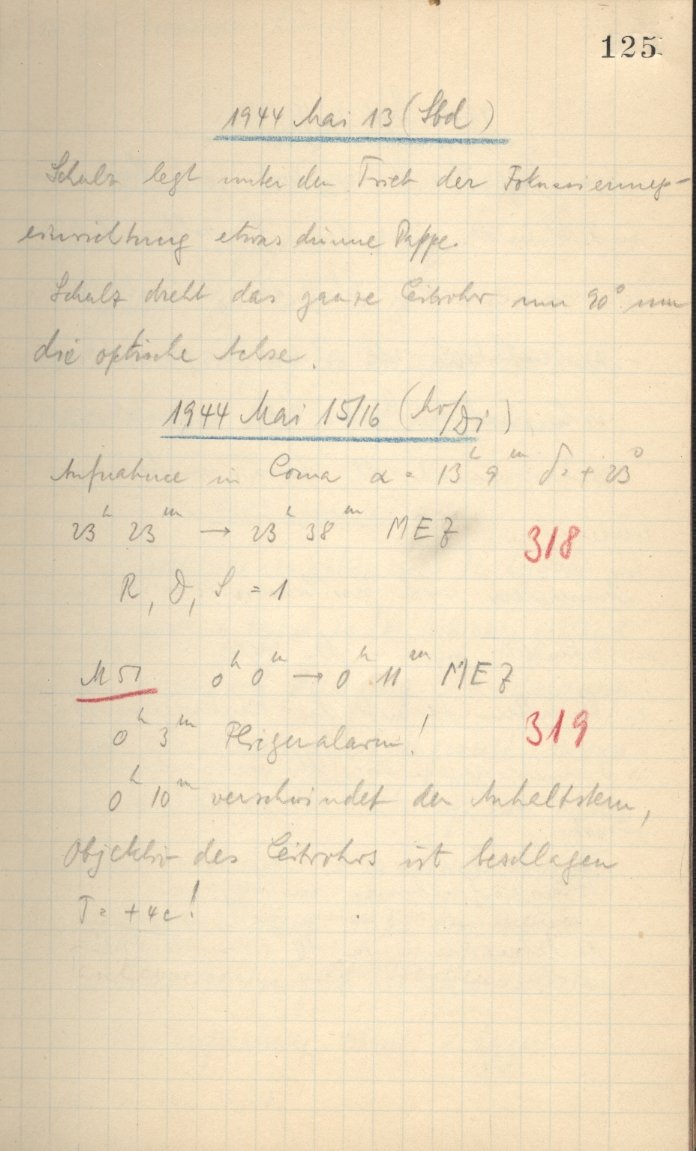 125
1944 Mai 13 (Sbd)
Schulz legt unter den Trieb der Fokussierungs-
einrichtung etwas dünne Pappe.
Schulz dreht das ganze Leitrohr um 90° um
die optische Achse.
1944 Mai 15/16 (Mo/Di)
Aufnahme in Coma α = 13ʰ 9ᵐ δ = + 23°
23ʰ 23ᵐ → 23ʰ 38ᵐ MEZ 318
R, D, S = 1
M 51 0ʰ 0ᵐ → 0ʰ 11ᵐ MEZ
0ʰ 3ᵐ Fliegeralarm! 319
0ʰ 10ᵐ verschwindet der Anhaltstern,
Objektiv des Leitrohrs ist beschlagen
T = + 4c!